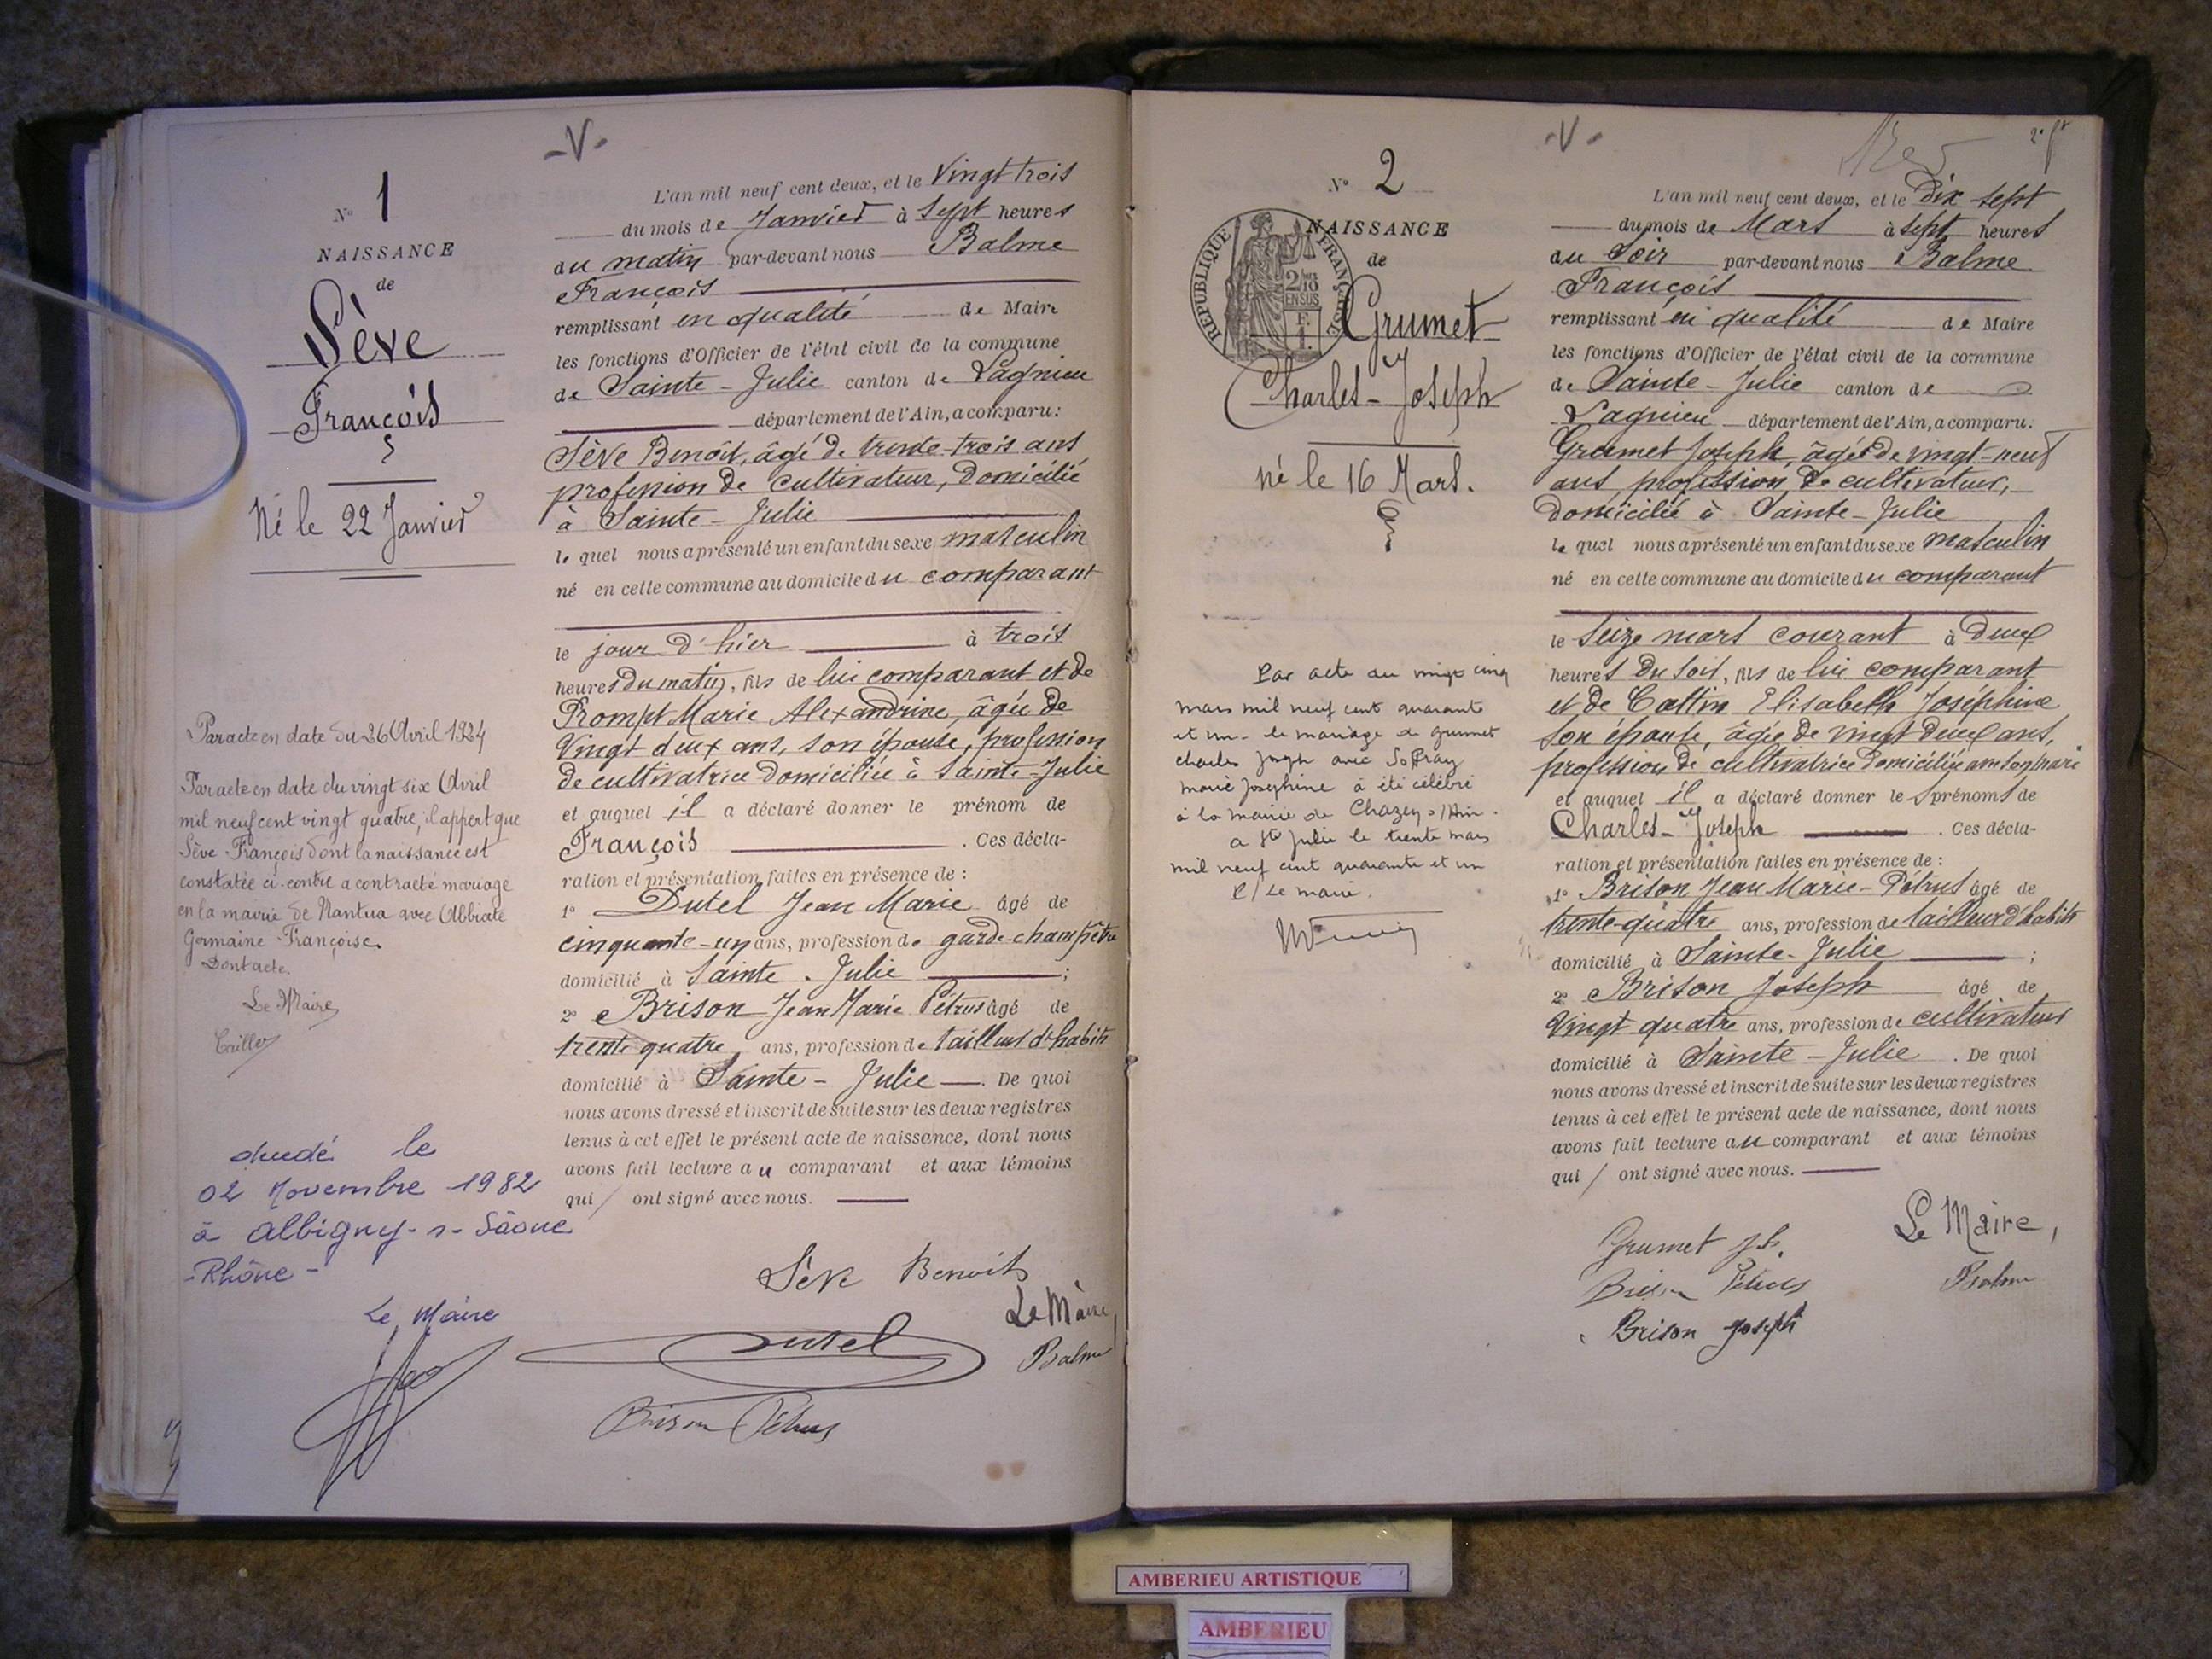 -V-
N° 1
NAISSANCE
de
Sève
François
Né le 22 Janvier
Par acte en date du 26 Avril 1924
Par acte en date du vingt six Avril
mil neuf cent vingt quatre, il appert que
Sève François dont la naissance est
constatée ci-contre a contracté mariage
en la mairie de Nantua avec Abbiate
Germaine Françoise.
Dont acte.
Le Maire
décédé le
02 Novembre 1982
à Albigny-s-Sâone
-Rhône-
Le Maire
L'an mil neuf cent deux, et le Vingt trois
du mois de Janvier à Sept heures
du matin par-devant nous Balme
François
remplissant en qualité de Maire
les fonctions d'Officier de l'état civil de la commune
de Sainte-Julie canton de Lagnieu
département de l'Ain, a comparu:
Sève Benoît, âgé de trente-trois ans
profession de cultivateur, domicilié
à Sainte-Julie
lequel nous a présenté un enfant du sexe masculin
né en cette commune au domicile du comparant
le jour d'hier à trois
heures du matin, fils de lui comparant et de
Prompt Marie Alexandrine, âgée de
Vingt deux ans, son épouse, profession
de cultivatrice domiciliée à Sainte-Julie
et auquel il a déclaré donner le prénom de
François . Ces décla-
ration et présentation faites en présence de :
1° Dutel Jean Marie âgé de
cinquante-un ans, profession de garde-champêtre
domicilié à Sainte-Julie ;
2° Brison Jean Marie Pétrus âgé de
trente quatre ans, profession de tailleur d'habits
domicilié à Sainte-Julie . De quoi
nous avons dressé et inscrit de suite sur les deux registres
tenus à cet effet le présent acte de naissance, dont nous
avons fait lecture au comparant et aux témoins
qui / ont signé avec nous.
Sève Benoit
Le Maire,
Dutel
Balme
Brison Pétrus
-V-
2e ft
N° 2
NAISSANCE
RÉPUBLIQUE FRANÇAISE
2/10
EN SUS
de
Grumet
Charles-Joseph
né le 16 Mars.
Par acte du vingt cinq
mars mil neuf cent quarante
et un - le mariage de Grumet
charles Joseph avec Soffray
marie Josephine a été célébré
à la mairie de Chazey s/Ain -
a Ste Julie le trente mars
mil neuf cent quarante et un
P/ Le maire.
L'an mil neuf cent deux, et le Dix-sept
du mois de Mars à Sept heures
du Soir par-devant nous Balme
François
remplissant en qualité de Maire
les fonctions d'Officier de l'état civil de la commune
de Sainte-Julie canton de
Lagnieu département de l'Ain, a comparu:
Grumet Joseph, âgé de vingt-neuf
ans, profession de cultivateur,
domicilié à Sainte-Julie
lequel nous a présenté un enfant du sexe masculin
né en cette commune au domicile du comparant
le seize mars courant à deux
heures du soir, fils de lui comparant
et de Cottin Elisabeth Joséphine
son épouse, âgée de vingt deux ans,
profession de cultivatrice domiciliée avec son mari
et auquel il a déclaré donner les prénoms de
Charles-Joseph . Ces décla-
ration et présentation faites en présence de :
1° Brison Jean Marie-Pétrus âgé de
trente-quatre ans, profession de tailleur d'habits
domicilié à Sainte-Julie ;
2° Brison Joseph âgé de
Vingt quatre ans, profession de cultivateur
domicilié à Sainte-Julie . De quoi
nous avons dressé et inscrit de suite sur les deux registres
tenus à cet effet le présent acte de naissance, dont nous
avons fait lecture au comparant et aux témoins
qui / ont signé avec nous.
Le Maire,
Grumet Jh.
Brison Pétrus
Balme
Brison Joseph
AMBERIEU ARTISTIQUE
AMBERIEU